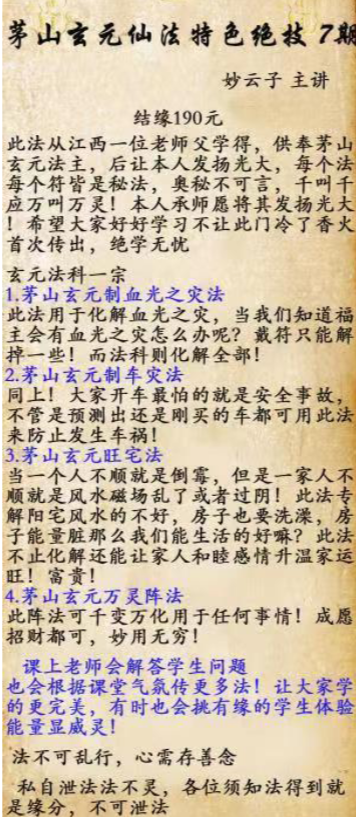 茅山玄元仙法特色绝技 7期
妙云子 主讲
结缘190元
此法从江西一位老师父学得，供奉茅山
玄元法主，后让本人发扬光大，每个法
每个符皆是秘法，奥秘不可言，千叫千
应万叫万灵！本人承师愿将其发扬光大
！希望大家好好学习不让此门冷了香火
首次传出，绝学无忧
玄元法科一宗
1.茅山玄元制血光之灾法
此法用于化解血光之灾，当我们知道福
主会有血光之灾怎么办呢？戴符只能解
掉一些！而法科则化解全部！
2.茅山玄元制车灾法
同上！大家开车最怕的就是安全事故，
不管是预测出还是刚买的车都可用此法
来防止发生车祸！
3.茅山玄元旺宅法
当一个人不顺就是倒霉，但是一家人不
顺就是风水磁场乱了或者过阴！此法专
解阳宅风水的不好，房子也要洗澡，房
子能量脏那么我们能生活的好嘛？此法
不止化解还能让家人和睦感情升温家运
旺！富贵！
4.茅山玄元万灵阵法
此阵法可千变万化用于任何事情！成愿
招财都可，妙用无穷！
课上老师会解答学生问题
也会根据课堂气氛传更多法！让大家学
的更完美，有时也会挑有缘的学生体验
能量显威灵！
法不可乱行，心需存善念
私自泄法法不灵，各位须知法得到就
是缘分，不可泄法